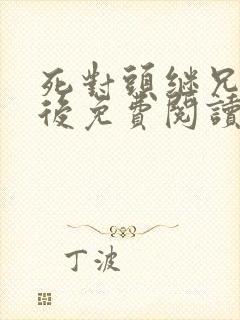 死對頭继兄
後免費閱讀
丁波